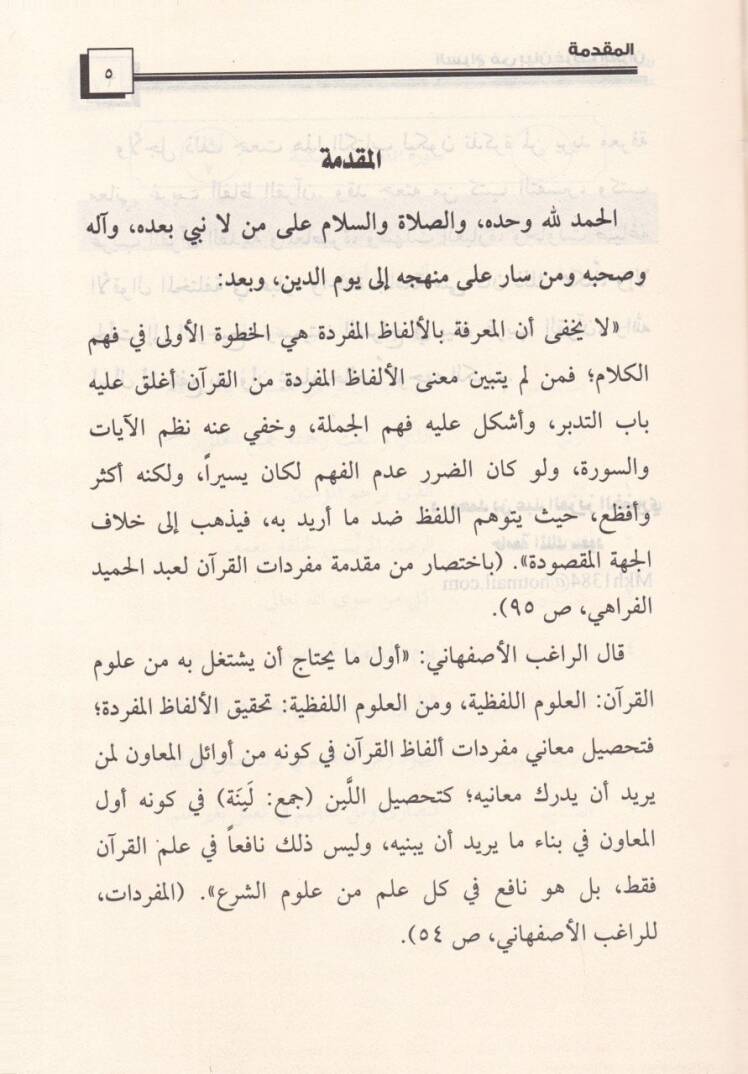 المقدمة
٥
المقدمة
الحمد لله وحده، والصلاة والسلام على من لا نبي بعده، وآله
وصحبه ومن سار على منهجه إلى يوم الدين، وبعد:
«لا يخفى أن المعرفة بالألفاظ المفردة هي الخطوة الأولى في فهم
الكلام؛ فمن لم يتبين معنى الألفاظ المفردة من القرآن أغلق عليه
باب التدبر، وأشكل عليه فهم الجملة، وخفي عنه نظم الآيات
والسورة، ولو كان الضرر عدم الفهم لكان يسيراً، ولكنه أكثر
وأفظع، حيث يتوهم اللفظ ضد ما أريد به، فيذهب إلى خلاف
الجهة المقصودة». (باختصار من مقدمة مفردات القرآن لعبد الحميد
الفراهي، ص ٩٥).
قال الراغب الأصفهاني: «أول ما يحتاج أن يشتغل به من علوم
القرآن: العلوم اللفظية، ومن العلوم اللفظية: تحقيق الألفاظ المفردة؛
فتحصيل معاني مفردات ألفاظ القرآن في كونه من أوائل المعاون لمن
يريد أن يدرك معانيه؛ كتحصيل اللَّبِن (جمع: لَبِنَة) في كونه أول
المعاون في بناء ما يريد أن يبنيه، وليس ذلك نافعاً في علم القرآن
فقط، بل هو نافع في كل علم من علوم الشرع». (المفردات،
للراغب الأصفهاني، ص ٥٤).